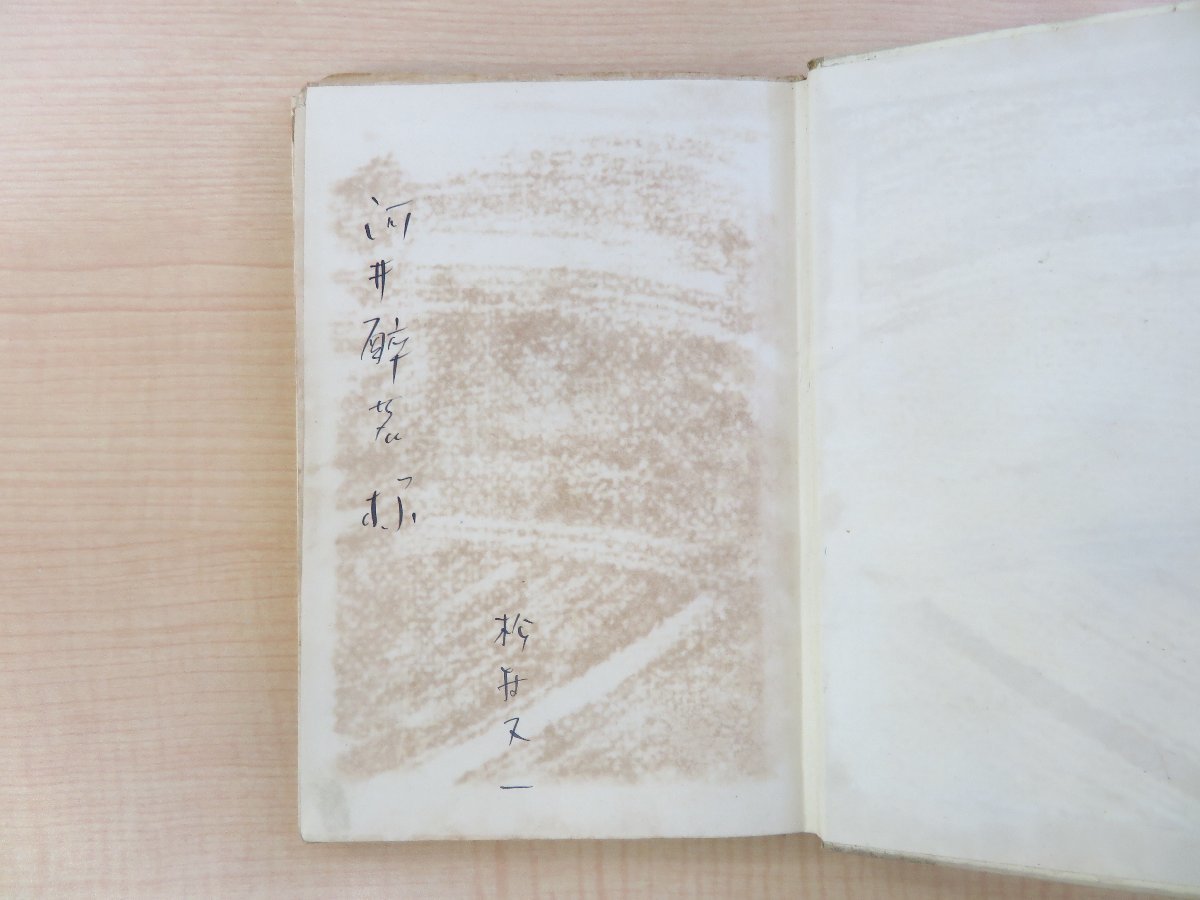 河井醉茗様
松村又一